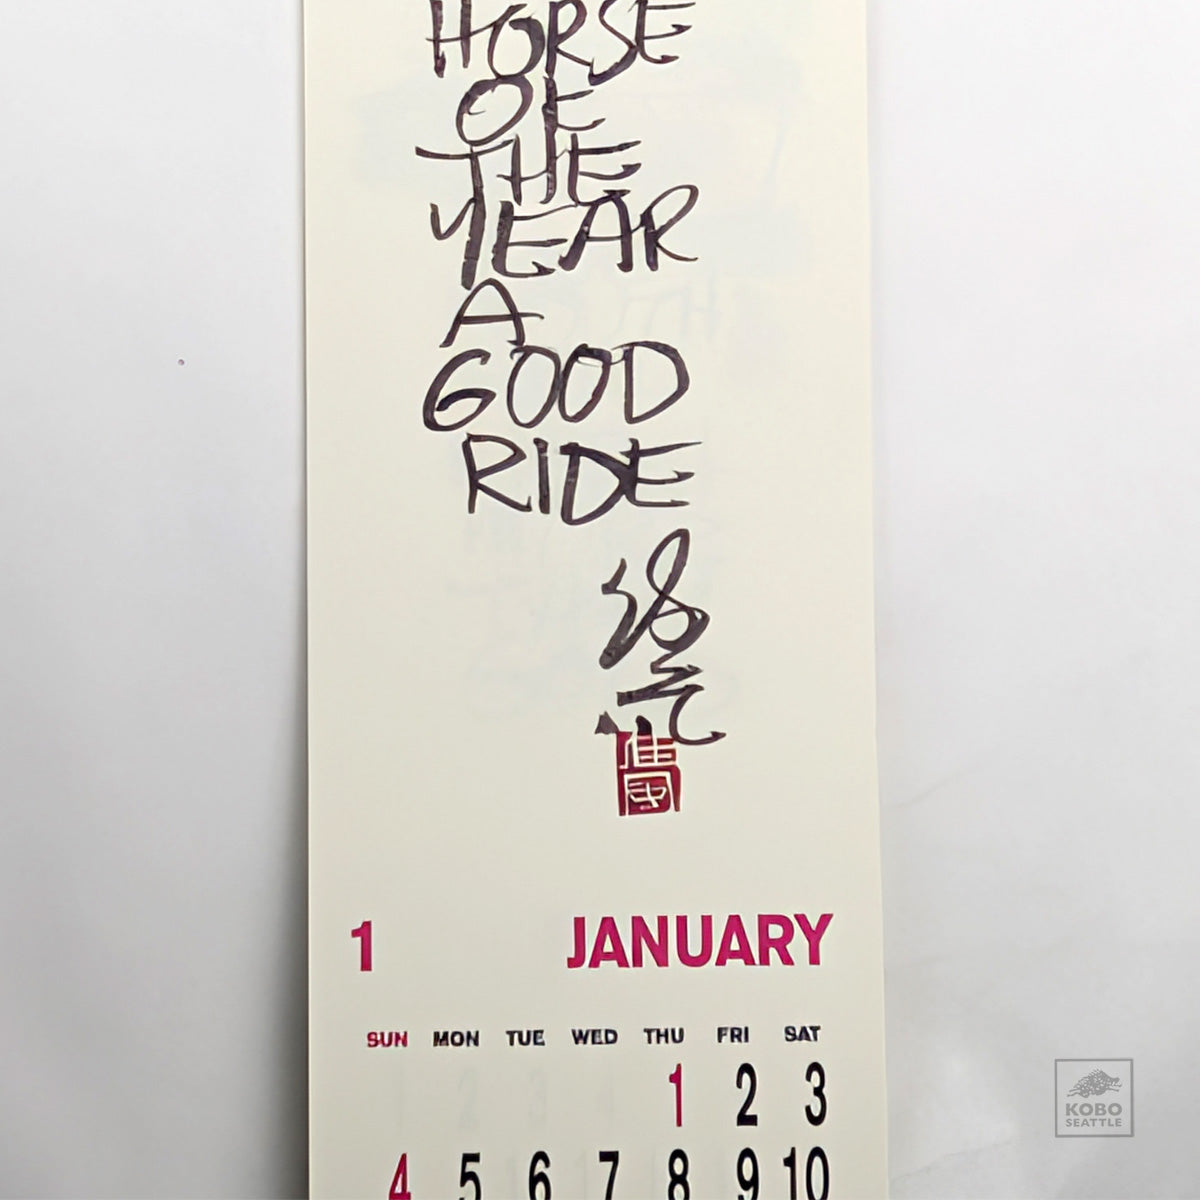 HORSE
OF
THE
YEAR
A
GOOD
RIDE
1 JANUARY
SUN MON TUE WED THU FRI SAT
1 2 3
4 5 6 7 8 9 10
KOBO
SEATTLE